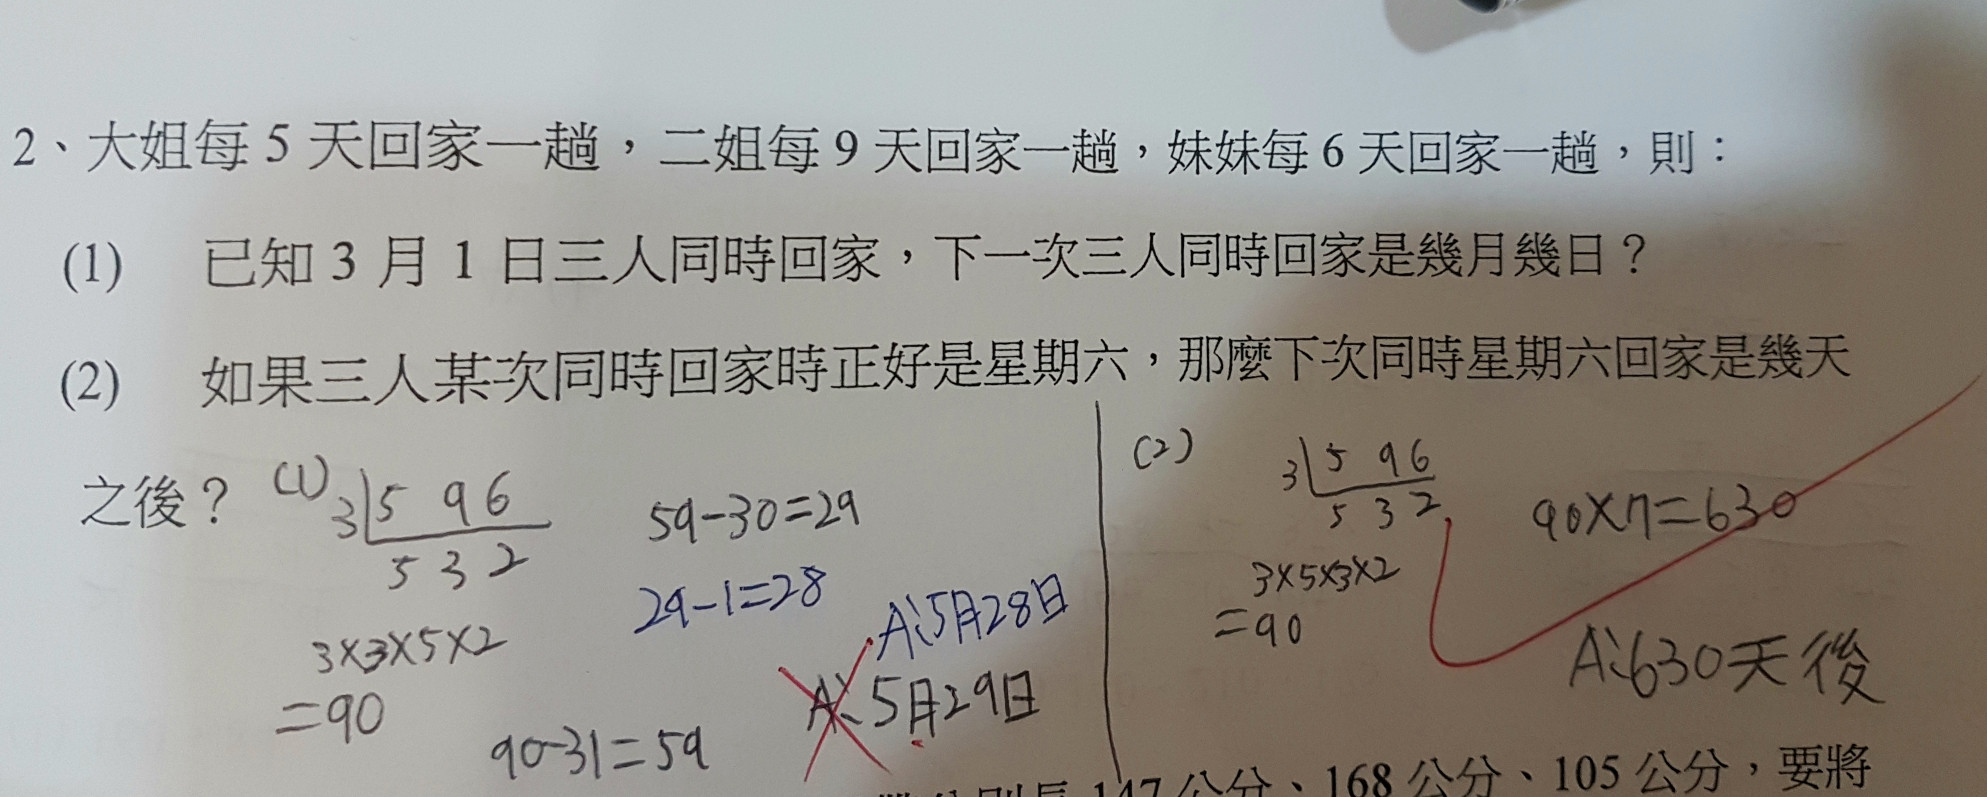 2、大姐每 5 天回家一趟，二姐每 9 天回家一趟，妹妹每 6 天回家一趟，則：
(1) 已知 3 月 1 日三人同時回家，下一次三人同時回家是幾月幾日？
(2) 如果三人某次同時回家時正好是星期六，那麼下次同時星期六回家是幾天
之後？
(1)
3 5 9 6
5 3 2
3×3×5×2
=90
90-31=59
59-30=29
29-1=28
A:5月28日
A:5月29日
(2)
3 5 9 6
5 3 2
3×5×3×2
=90
90×7=630
A:630天後
147 公分、168 公分、105 公分，要將